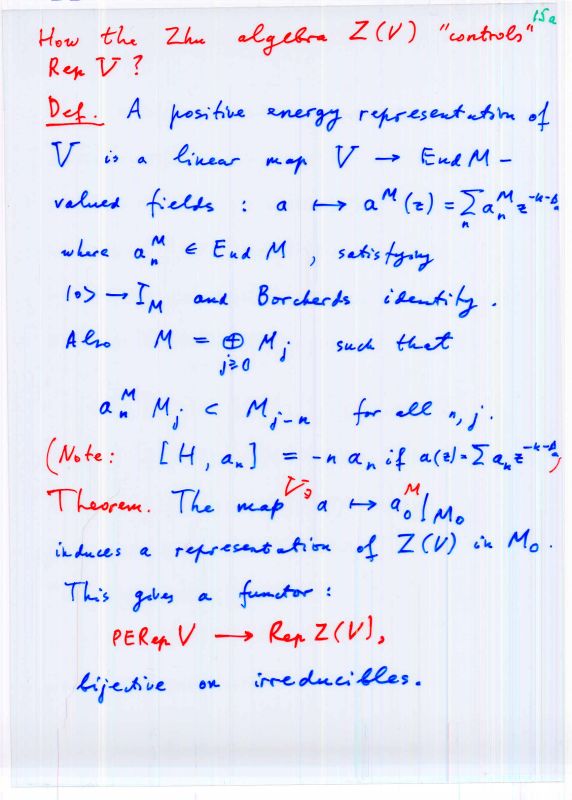 15a
How the Zhu algebra Z(V) "controls"
Rep V ?
Def. A positive energy representation of
V is a linear map V → End M –
valued fields : a ↦ a^M(z) = Σ_n a_n^M z^{-n-Δ_a}
where a_n^M ∈ End M , satisfying
|0> → I_M and Borcherds identity .
Also M = ⊕_{j≥0} M_j such that
a_n^M M_j ⊂ M_{j-n} for all n, j .
(Note: [H, a_n] = -n a_n if a(z) = Σ a_n z^{-n-Δ_a})
Theorem. The map V∋ a ↦ a_0^M|_{M_0}
induces a representation of Z(V) in M_0 .
This gives a functor :
PERep V ⟶ Rep Z(V),
bijective on irreducibles.